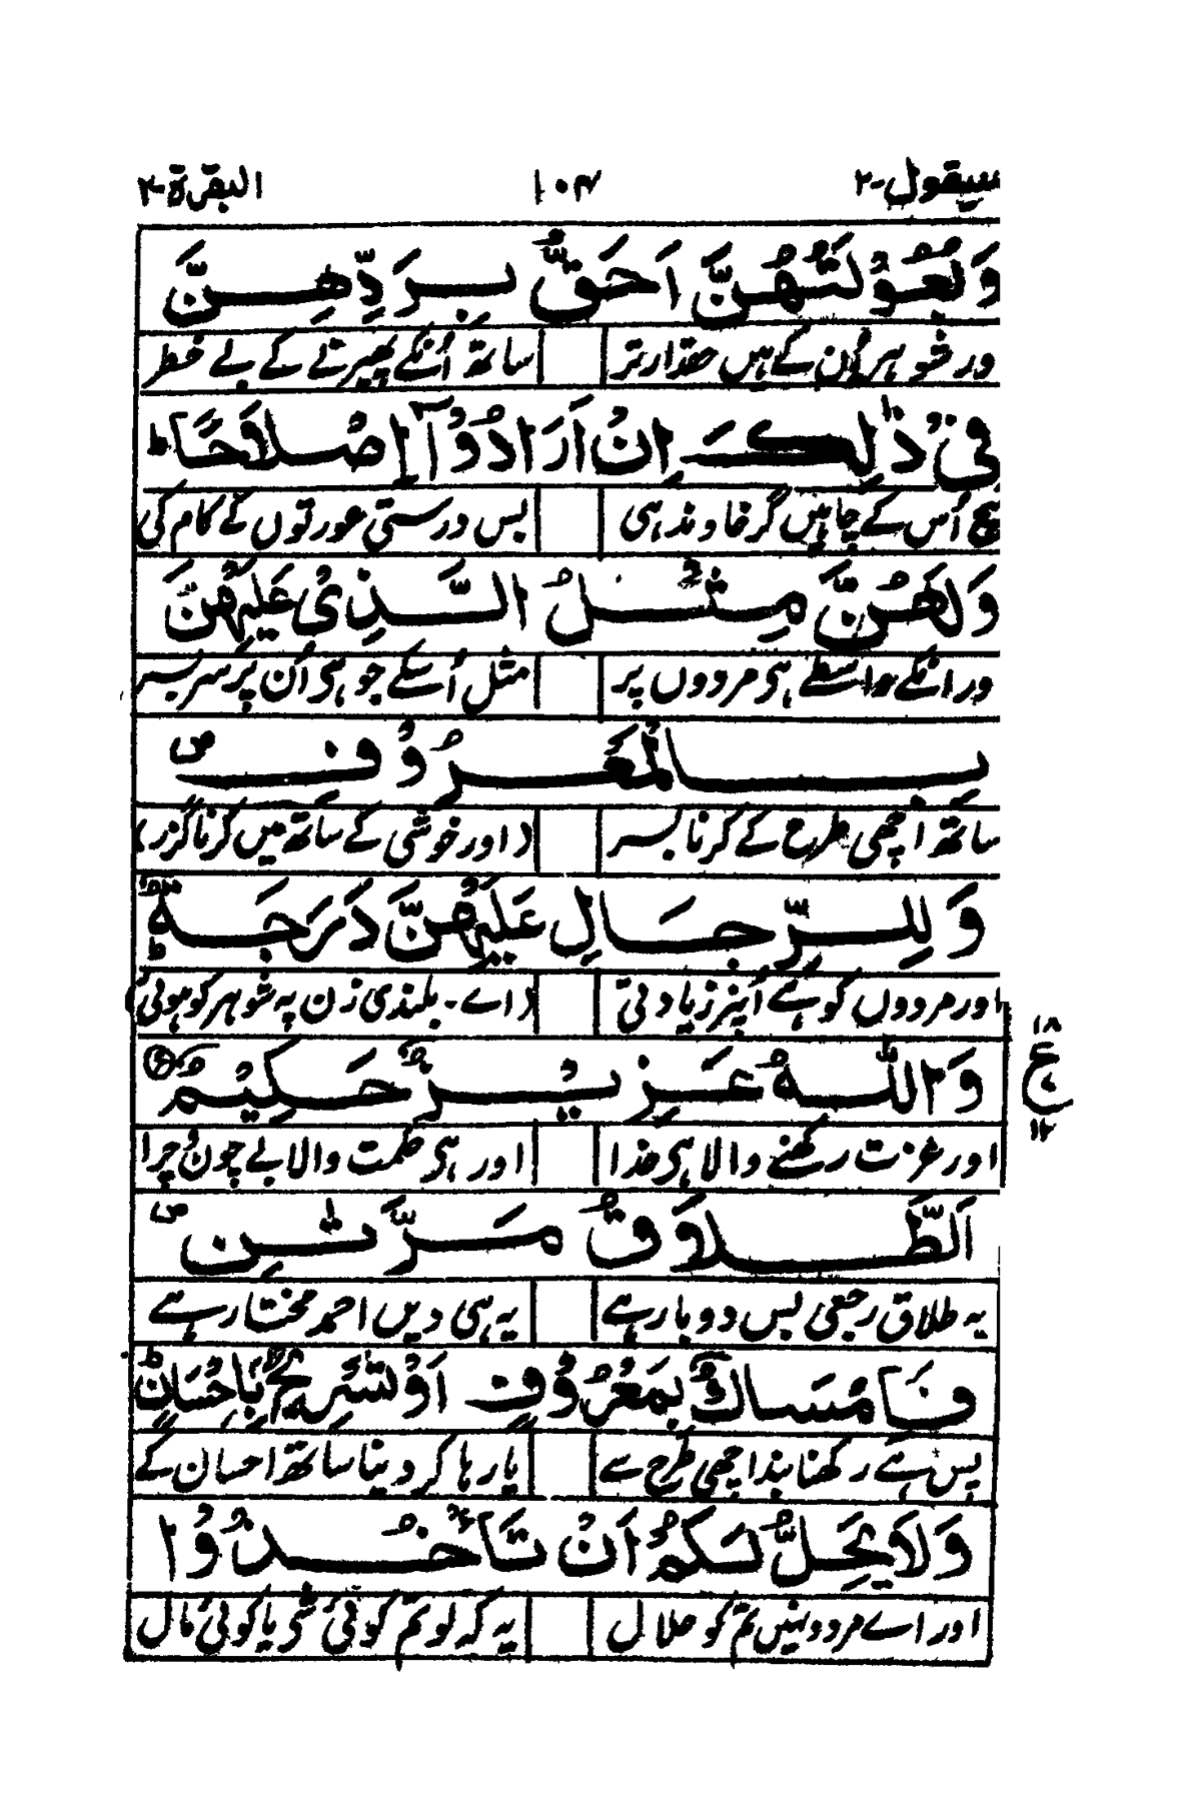 سیقول-۲ ۱۰۴ البقرة-۲
وَبُعُوْلَتُهُنَّ اَحَقُّ بِرَدِّهِنَّ
ور شوہر اُن کے ہیں حقدار تر ساتھ اُنکے پھیرنے کے بے خطر
فِيْ ذٰلِكَ اِنْ اَرَادُوْٓا اِصْلَاحًا ؕ
بیچ اُس کے چاہیں گر خاوند ہی بس درستی عورتوں کے کام کی
وَلَهُنَّ مِثْلُ الَّذِيْ عَلَيْهِنَّ
ور انکے واسطے ہی مردوں پر مثل اُسکے جو ہی اُن پر سر بسر
بِالْمَعْرُوْفِ ۪
ساتھ اچھی طرح کے کرنا بسر (اور خوشی کے ساتھ میں کرنا گزر)
وَلِلرِّجَالِ عَلَيْهِنَّ دَرَجَةٌ ؕ
اور مردوں کو ہے اُنپر زیادتی (اے۔ بلندی زن پہ شوہر کو ہوئی)
وَاللّٰهُ عَزِيْزٌ حَكِيْمٌ
۱۸
ع
۱۲
اور عزت رکھنے والا ہی خدا اور ہی حکمت والا بے چون چرا
اَلطَّلَاقُ مَرَّتٰنِ ۪
یہ طلاق رجعی بس دو بار ہے یہ ہی دیں احمد مختار ہے
فَاِمْسَاكٌۢ بِمَعْرُوْفٍ اَوْ تَسْرِيْحٌۢ بِاِحْسَانٍ ؕ
پس ہے رکھنا بندا چھی طرح سے یا رہا کر دینا ساتھ احسان کے
وَلَا يَحِلُّ لَكُمْ اَنْ تَاْخُذُوْا
اور اے مردو نہیں تم کو حلال یہ کہ لو تم کوئی شی یا کوئی مال